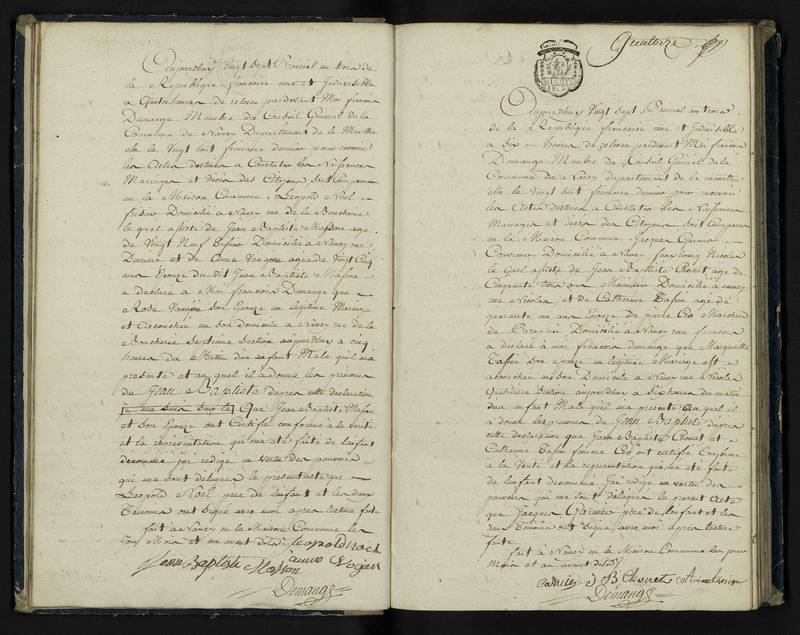 Aujourdhuy Vingt Sept Prairial an trois de
la République francaise une et Indivisible
a quatre heures de relevée pardevant Moi francois
Demange Membre du Conseil Général de la
Commune de Nancy Departement de la Meurthe
elu le Vingt huit frimaire dernier pour recevoir
les Actes destinés a Constater les Naissances
Mariages et décès des Citoyens est Comparu
en la Maison Commune, Léopold Noel
Domicilié a Nancy rue de la Boucherie
lequel assisté de Jean Baptiste Masson agé
de Vingt Neuf Domicilié a Nancy rue
et de Anne agée de Vingt Cinq
ans Epouze du dit Jean Baptiste Masson
a déclaré a Moi francois Demange que
Rose son Epouze en légitime Mariage
est accouchée en son domicile a Nancy rue de la
Boucherie Section aujourdhuy a cinq
heures du Matin d'un enfant Male qu'il m'a
présenté et auquel il a donné les prénoms
de Jean Baptiste dapres cette declaration
Que Jean Baptiste Masson
et son Epouze ont Certifié conforme a la verité
et la représentation qui m'a été faite de l'enfant
dénommé j'ai redigé en vertu des pouvoirs
qui me sont délégués le présent acte que
Léopold Noël père de l'enfant et les deux
témoins ont signé avec moi apres lecture faite
fait a Nancy en la Maison Commune les
jour Mois et an avant dits Leopold noel
Jean Baptiste Masson anne
Demange
Quatorze
Aujourdhuy Vingt Sept Prairial an trois
de la République francaise une et Indivisible
a Six heures de relevée pardevant Moi francois
Demange Membre du Conseil Général de la
Commune de Nancy département de la meurthe
elu le Vingt huit frimaire dernier pour recevoir
les Actes destinés a Constater les Naissances
Mariages et décès des Citoyens est Comparu
en la Maison Commune Jacques Garnier
Domicilié a Nancy faubourg Nicolas
lequel assisté de Jean Baptiste Chonet agé de
Cinquante trois ans Menuisier Domicilié a nancy
rue Nicolas et de Catherine agée de
quarante un ans Epouze de pierre Marchand
de Parapluie Domiciliée a Nancy rue
a déclaré a moi francois demange que Marguerite
son epouze en légitime Mariage est
accouchée en son Domicile a Nancy rue Nicolas
Quatrième Section aujourdhuy a Six heures du matin
d'un enfant Male qu'il m'a présenté auquel il
a donné les prénoms de Jean Baptiste dapres
cette declaration que Jean Baptiste Chonet et
Catherine femme ont certifié Conforme
a la Verité et la représentation qui m'a été faite
de l'enfant dénommé j'ai redigé en vertu des
pouvoirs qui me sont délégués le présent Acte
que Jacques Garnier père de l'enfant et les
deux témoins ont signé avec moi apres lecture
faite
fait a Nancy en la Maison Commune les jour
Mois et an avant dits
Garnier J B Chonet
Demange